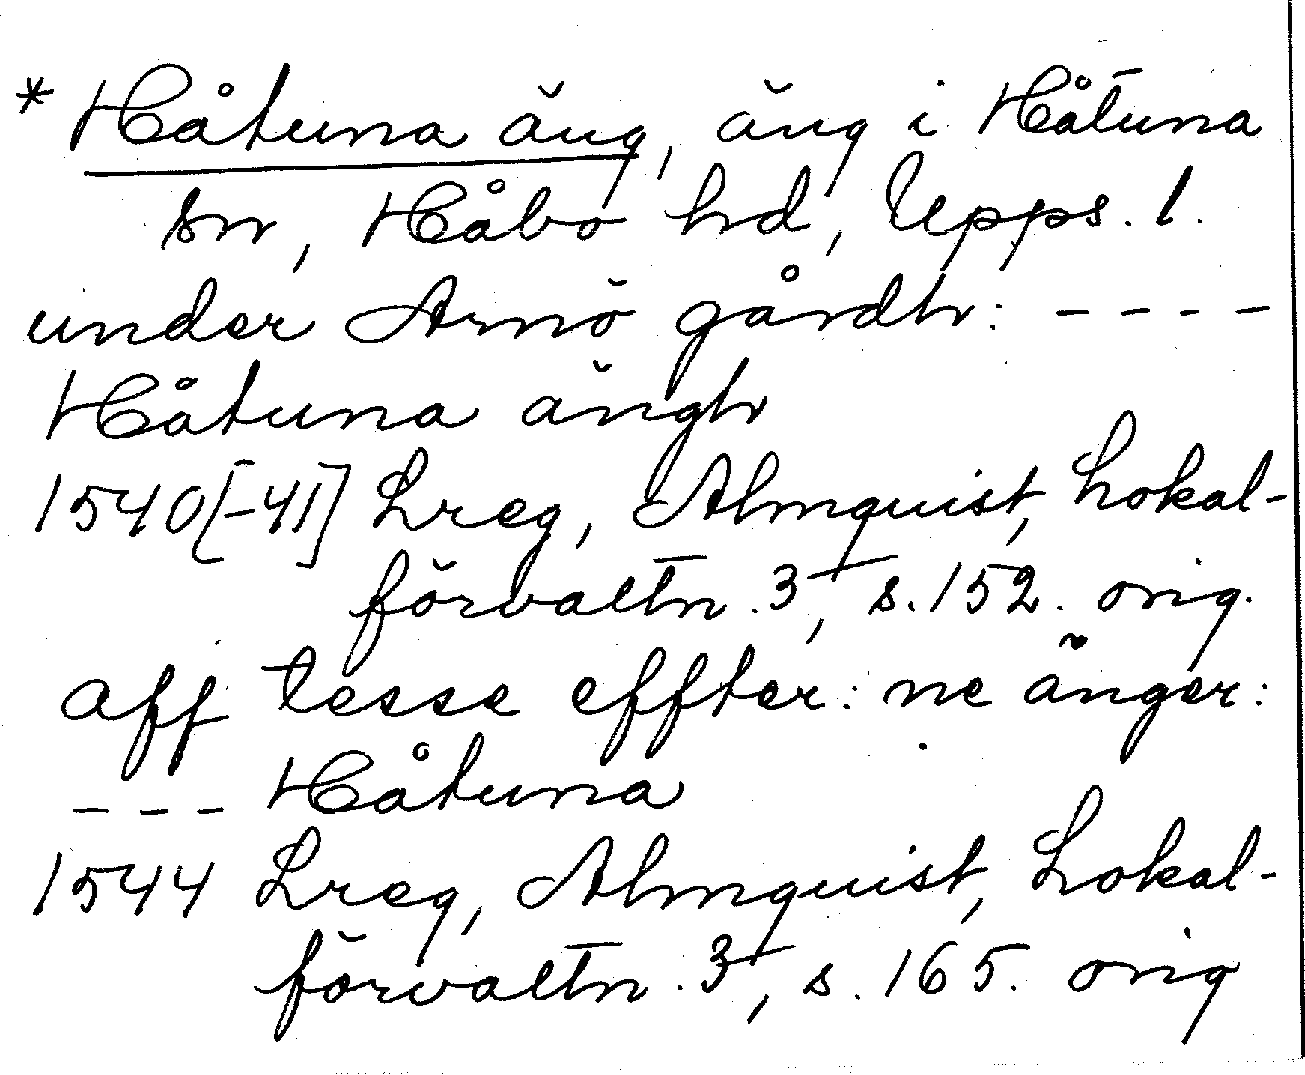 * Håtuna äng, äng i Håtuna
sn, Håbo hd, Upps. l.
under Arnö gårdh: - - - -
Håtuna ängh
1540[-41] Lreg, Almquist, Lokal-
förvaltn. 3, s. 152. orig.
aff tesse effter: ne änger:
- - - Håtuna
1544 Lreg, Almquist, Lokal-
förvaltn. 3, s. 165. orig